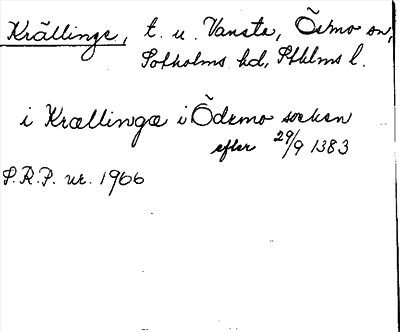 Krällinge, t. u. Vansta, Ösmo sn,
Sotholms hd, Sthlms l.
i Krællingæ i Ødzmo sokan
efter 29/9 1383
S.R.P. nr. 1966